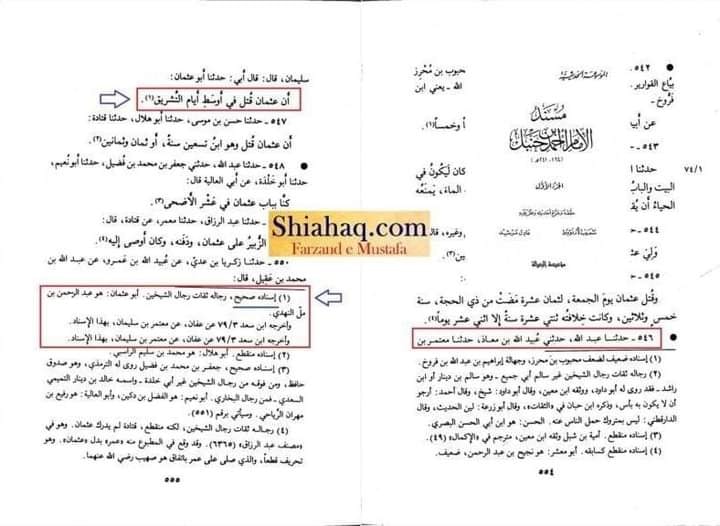 ● ٥٤٢ -
بيّاع القوارير
فروخ -
عن أبيه
٥٤٣ -
حدثنا
البيت والباب
الحياءُ أن يُقـ
وَلِيَ عثـ
٥٤٥ -
حبوب بن مُحْرِز
الله - يعني ابن
وخمساً(١).
كان لَيَكُونُ في
الماءَ، يَمْنَعُه
وغيره، قال
٧٤/١
الموسوعة الحديثية
مسند
الإمام أحمد بن حنبل
(١٦٤ - ٢٤١ هـ)
الجزء الأول
شعيب الأرنؤوط عادل مرشد
مؤسسة الرسالة
وقُتل عثمان يومَ الجمعة، لثمان عشرة مَضَتْ من ذي الحجة، سنة
خمسٍ وثلاثين، وكانت خِلافتُه ثنتي عشرة سنةً إلا اثني عشر يوماً(٤).
● ٥٤٦ - حدثنــا عبـد الله، حدثني عُبيد الله بن معاذ، حدثنا معتمر بن
(١) إسناده ضعيف لضعف محبوب بن محرز، وجهالة إبراهيم بن عبد الله بن فروخ.
(٢) رجاله ثقات رجال الشيخين غير سالم أبي جميع - وهو سالم بن دينار أو ابن
راشد - فقد روى له أبو داود، ووثقه ابن معين، وقال أبو داود: شيخ، وقال أحمد: أرجو
أن لا يكون به بأس، وذكره ابن حبان في «الثقات»، وقال أبو زرعة: لين الحديث، وقال
الدارقطني: ليس بمتروك حمل الناس عنه. الحسن: هو ابن أبي الحسن البصري.
(٣) إسناده منقطع. أمية بن شبل وثقه ابن معين، مترجم في «الإكمال» (٤٩)
(٤) إسناده منقطع كسابقه. أبو معشر: هو نجيح بن عبد الرحمن، ضعيف.
٥٥٤
سليمان، قال: قال أبي: حدثنا أبو عثمان:
أن عثمان قُتل في أوسَطِ أيام التَّشريق(١).
٥٤٧ - حدثنا حسن بن موسى، حدثنا أبو هلال، حدثنا قتادة:
أن عثمان قُتل وهو ابنُ تسعين سنةً، أو ثمان وثمانين(٢).
● ٥٤٨ - حدثنا عبد الله، حدثني جعفر بن محمد بن فُضيل، حدثنا أبو نُعيم،
حدثنا أبو خَلْدَة، عن أبي العالية قال:
كنَّا بباب عثمان في عَشْر الأضحى(٣).
حدثنا عبد الرزاق، حدثنا معمر، عن قتادة، قال:
الزُّبيرُ على عثمان، ودَفَنه، وكان أوصى إليه(٤).
Shiahaq.com
Farzand e Mustafa
٥٥٠ - حدثنا زكريا بن عديّ، عن عُبيد الله بن عَمرو، عن عبد الله بن
محمد بن عَقيل، قال:
(١) إسناده صحيح، رجاله ثقات رجال الشيخين. أبو عثمان: هو عبد الرحمن بن
ملّ النهدي.
وأخرجه ابن سعد ٧٩/٣ عن عفان، عن معتمر بن سليمان، بهذا الإسناد.
وأخرجه ابن سعد ٧٩/٣ عن عفان، عن معتمر بن سليمان، بهذا الإسناد.
(٢) إسناده منقطع. أبو هلال: هو محمد بن سليم الراسبي.
(٣) إسناده صحيح، جعفر بن محمد بن فضيل روى له الترمذي، وهو صدوق
حافظ، ومن فوقه من رجال الشيخين غير أبي خلدة - واسمه خالد بن دينار التميمي
السعدي - فمن رجال البخاري. أبو نعيم: هو الفضل بن دكين، وأبو العالية: هو رفيع بن
مهران الرِّياحي. وسيأتي برقم (٥٥١).
(٤) رجاله ثقات رجال الشيخين، لكنه منقطع، قتادة لم يدرك عثمان. وهو في
«مصنف عبد الرزاق» (٦٣٦٥). وقد وقع في المطبوع منه «عمر» بدل «عثمان»، وهو
تحريف قطعاً، والذي صلى على عمر باتفاق هو صهيب رضي الله عنهما.
٥٥٥